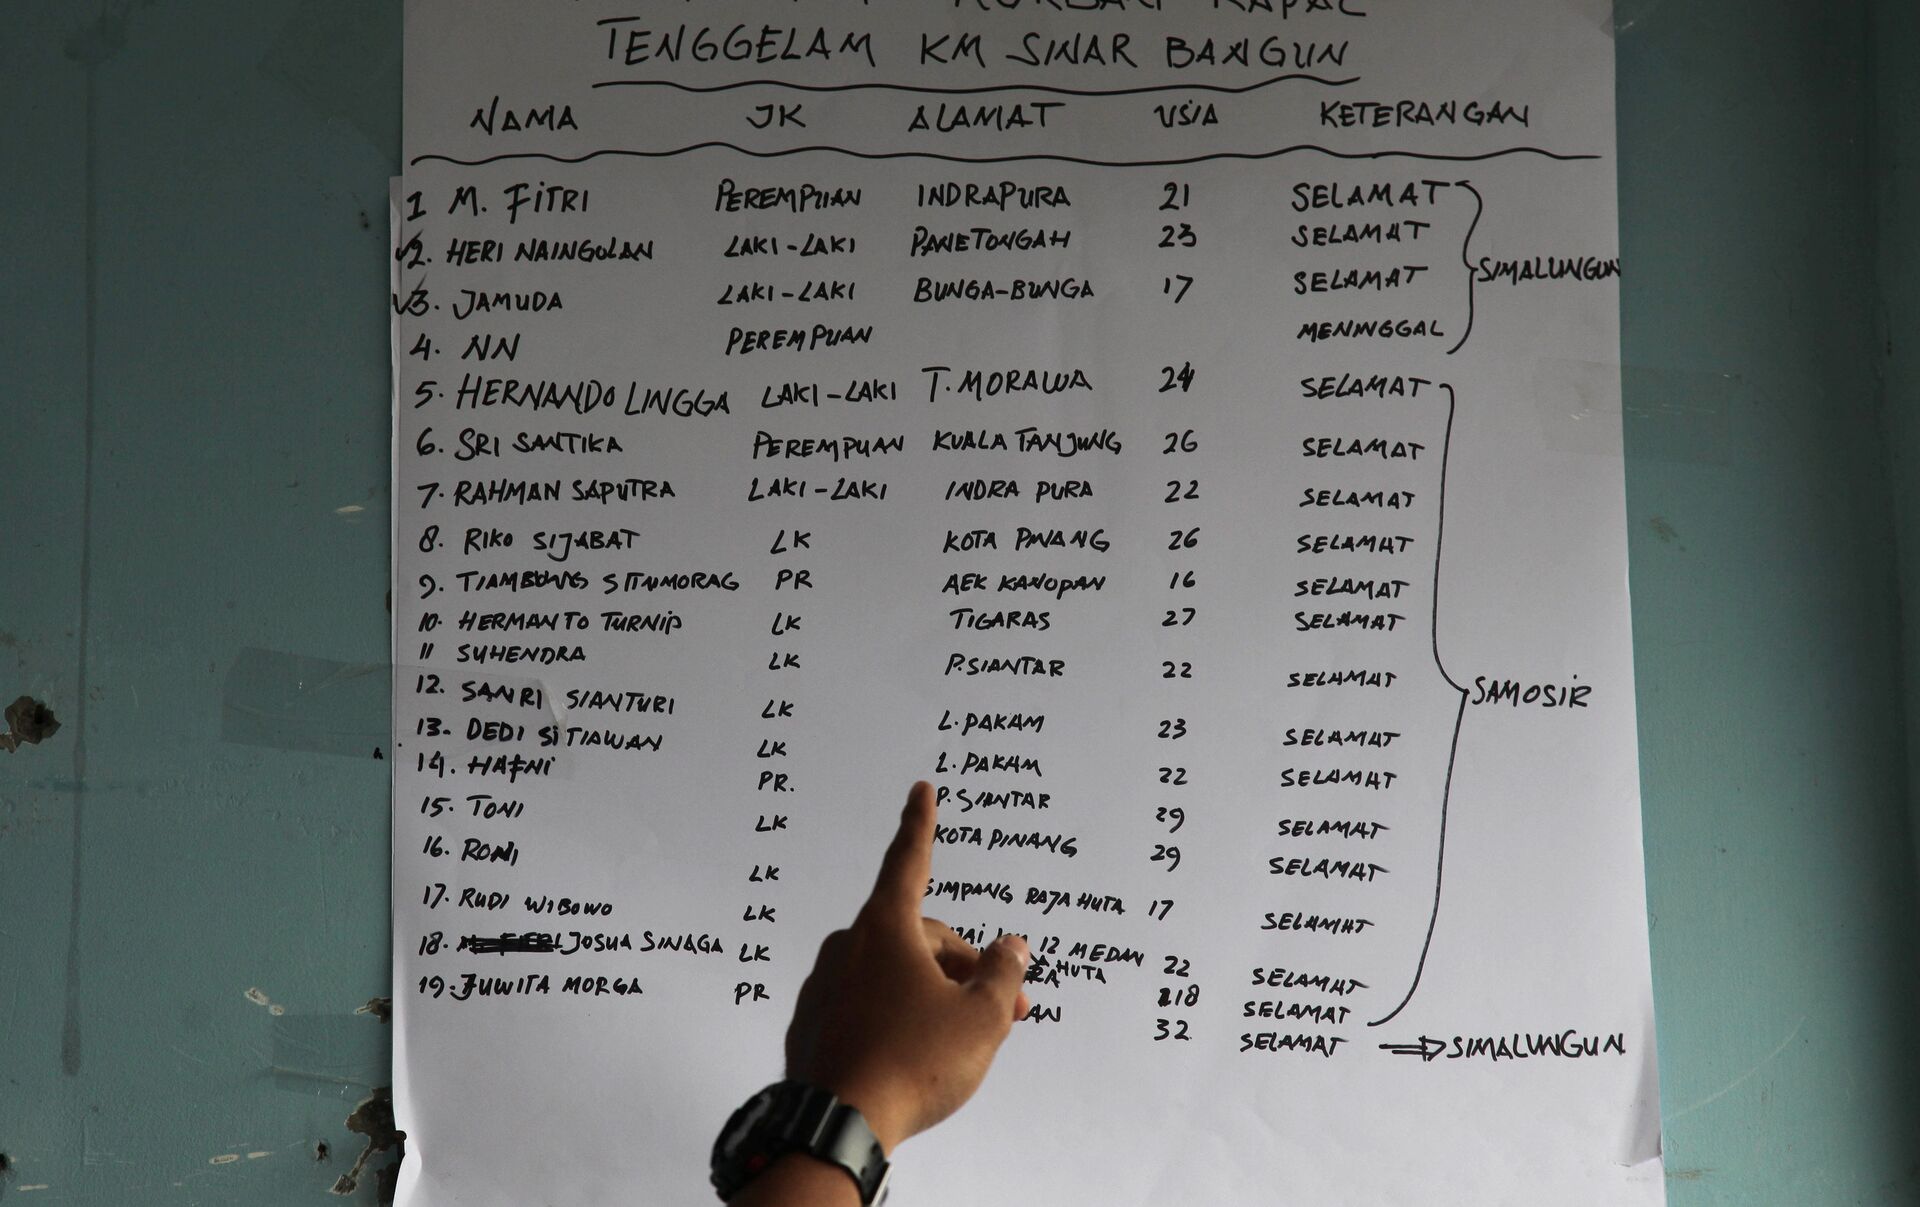 KORBAN KAPAL
TENGGELAM KM SINAR BANGUN
NAMA JK ALAMAT USIA KETERANGAN
1 M. FITRI PEREMPUAN INDRAPURA 21 SELAMAT
2. HERI NAINGOLAN LAKI-LAKI PANETONGAH 23 SELAMAT
SIMALUNGUN
3. JAMUDA LAKI-LAKI BUNGA-BUNGA 17 SELAMAT
4. NN PEREMPUAN MENINGGAL
5. HERNANDO LINGGA LAKI-LAKI T. MORAWA 24 SELAMAT
6. SRI SANTIKA PEREMPUAN KUALA TANJUNG 26 SELAMAT
7. RAHMAN SAPUTRA LAKI-LAKI INDRA PURA 22 SELAMAT
8. RIKO SIJABAT LK KOTA PINANG 26 SELAMAT
9. TIAMBUNG SITNMORAG PR AEK KANOPAN 16 SELAMAT
10. HERMANTO TURNIP LK TIGARAS 27 SELAMAT
11 SUHENDRA LK P.SIANTAR 22 SELAMAT
SAMOSIR
12. SANRI SIANTURI LK L. PAKAM 23 SELAMAT
13. DEDI SITIAWAN LK L. PAKAM 22 SELAMAT
14. HAFNI PR. P. SIANTAR 29 SELAMAT
15. TONI LK KOTA PINANG 29 SELAMAT
16. RONI LK SIMPANG RAJA HUTA 17 SELAMAT
17. RUDI WIBOWO LK 12 MEDAN 22 SELAMAT
18. JOSUA SINAGA LK HUTA 18 SELAMAT
19. JUWITA MORGA PR 32 SELAMAT SIMALUNGUN